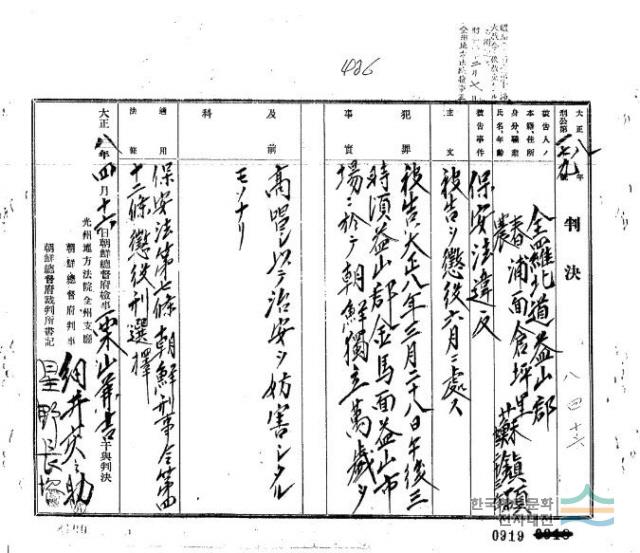 426
大正八年
刑公第一七九號
判決
八 四 十六
被告人ノ
本籍、住所
身分、職業
氏名、年齡
全羅北道益山郡
春浦面倉坪里
農
蘇鎭碩
被告事件
保安法違反
主文
被告ヲ懲役六月ニ處ス
犯罪
事實
被告ハ大正八年三月二十八日午後三
時頃益山郡金馬面益山市
場ニ於テ朝鮮獨立萬歲ヲ
及前
科
高唱シ以テ治安ヲ妨害シタル
モノナリ
適用
法條
保安法第七條朝鮮刑事令第四
十二條懲役刑選擇
大正八年四月十六日朝鮮總督府檢事栗山茂吉干與判決
光州地方法院全州支廳
朝鮮總督府判事 細井英之助
朝鮮總督府裁判所書記 星野長
한국향토문화
전자대전
0919